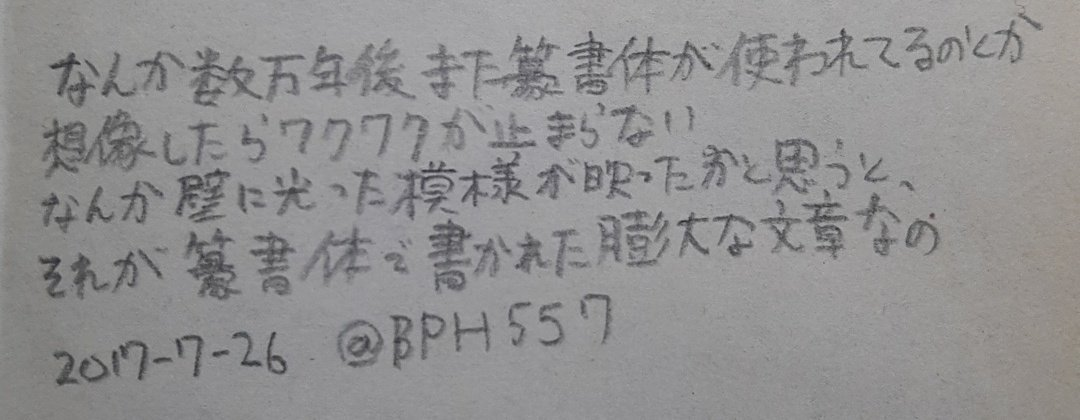 なんか数万年後また篆書体が使われてるのとか
想像したらワクワクが止まらない
なんか壁に光った模様が映ったかと思うと、
それが篆書体で書かれた膨大な文章なの
2017-7-26 @BPH557